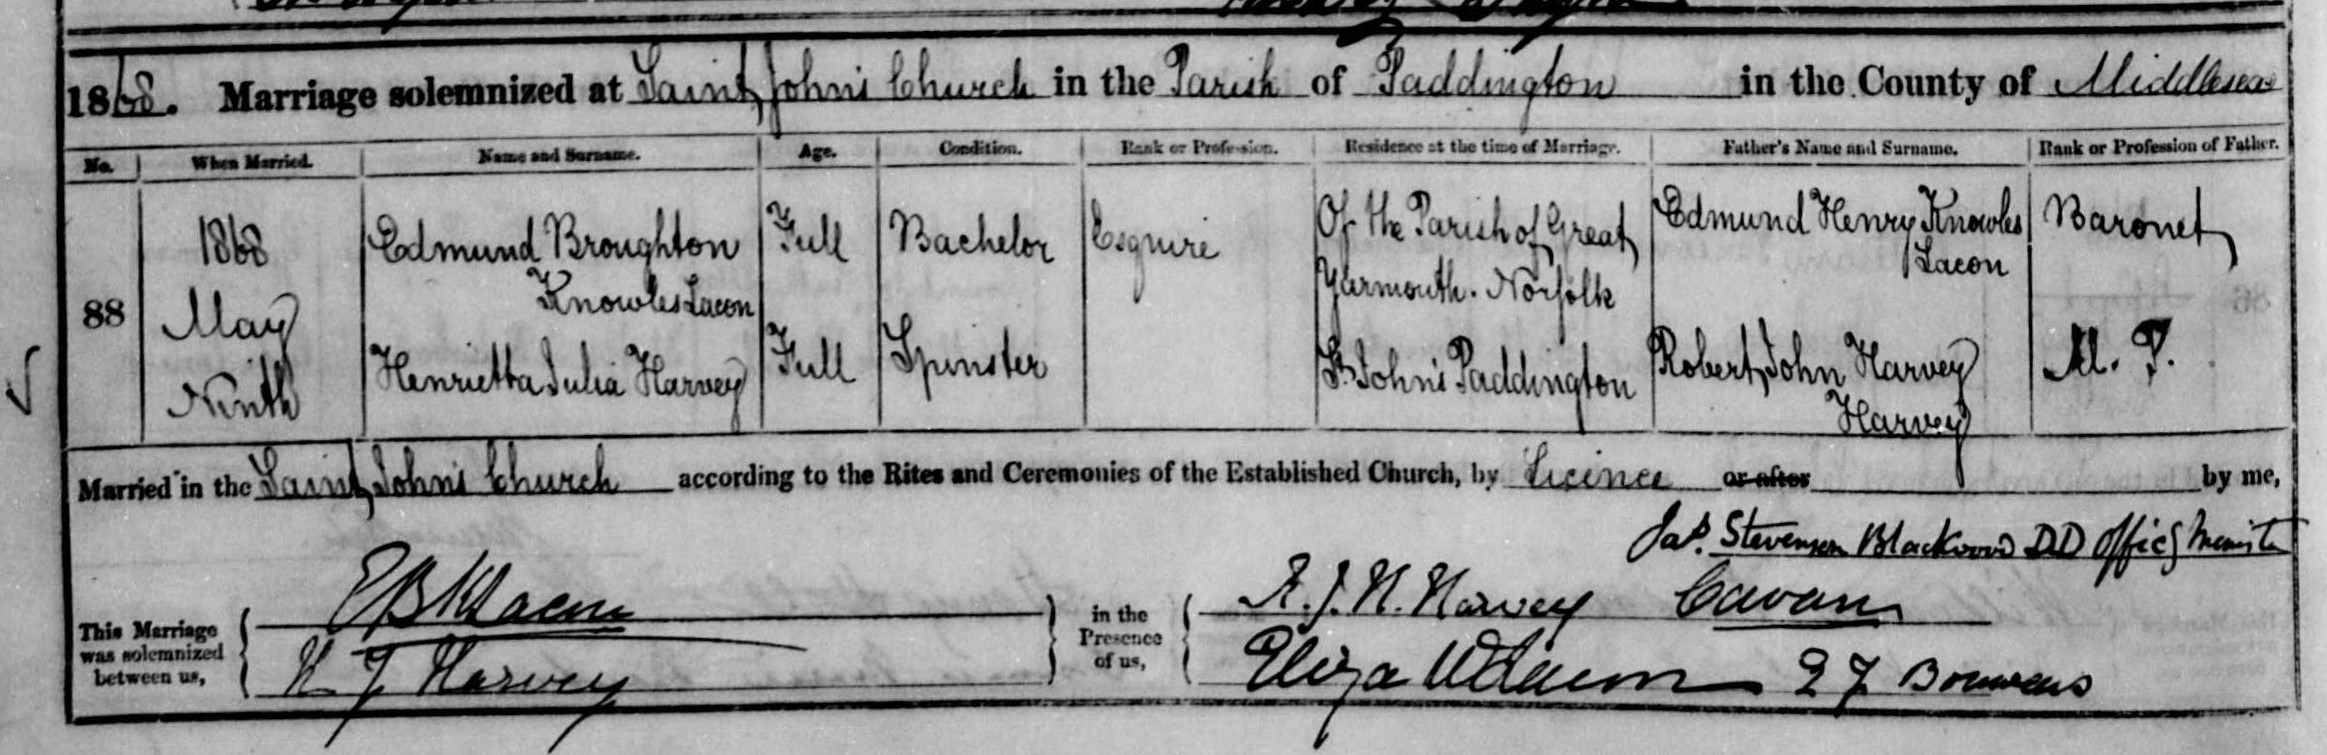 1868. Marriage solemnized at Saint John's Church in the Parish of Paddington in the County of Middlesex
No. When Married. Name and Surname. Age. Condition. Rank or Profession. Residence at the time of Marriage. Father's Name and Surname. Rank or Profession of Father.
88
1868
May
Ninth
Edmund Broughton
Knowles Lacon
Full
Bachelor
Esquire
Of the Parish of Great
Yarmouth. Norfolk
Edmund Henry Knowles
Lacon
Baronet
Henrietta Julia Harvey
Full
Spinster
St John's Paddington
Robert John Harvey
Harvey
M. P.
Married in the Saint John's Church according to the Rites and Ceremonies of the Established Church, by Licence or after by me,
Jas. Stevenson Blackwood DD Officg Minister
This Marriage
was solemnized
between us,
E B K Lacon
H J Harvey
in the
Presence
of us,
R. J. H. Harvey Cavan
Eliza Lacon